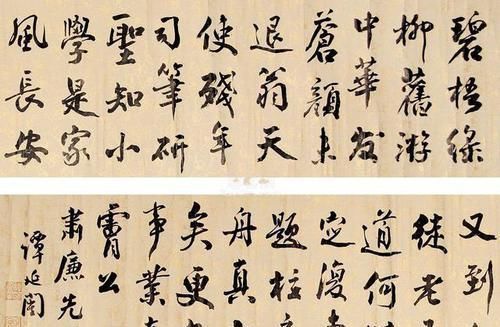 碧梧綠
柳舊游
中華發
蒼顏未
退翁天
使殘年
司筆研
聖知小
學是家
風長安
又到
徒老
道何
定復
題柱
舟真
矣更
事業
霄公
肅廉先
譚延闓